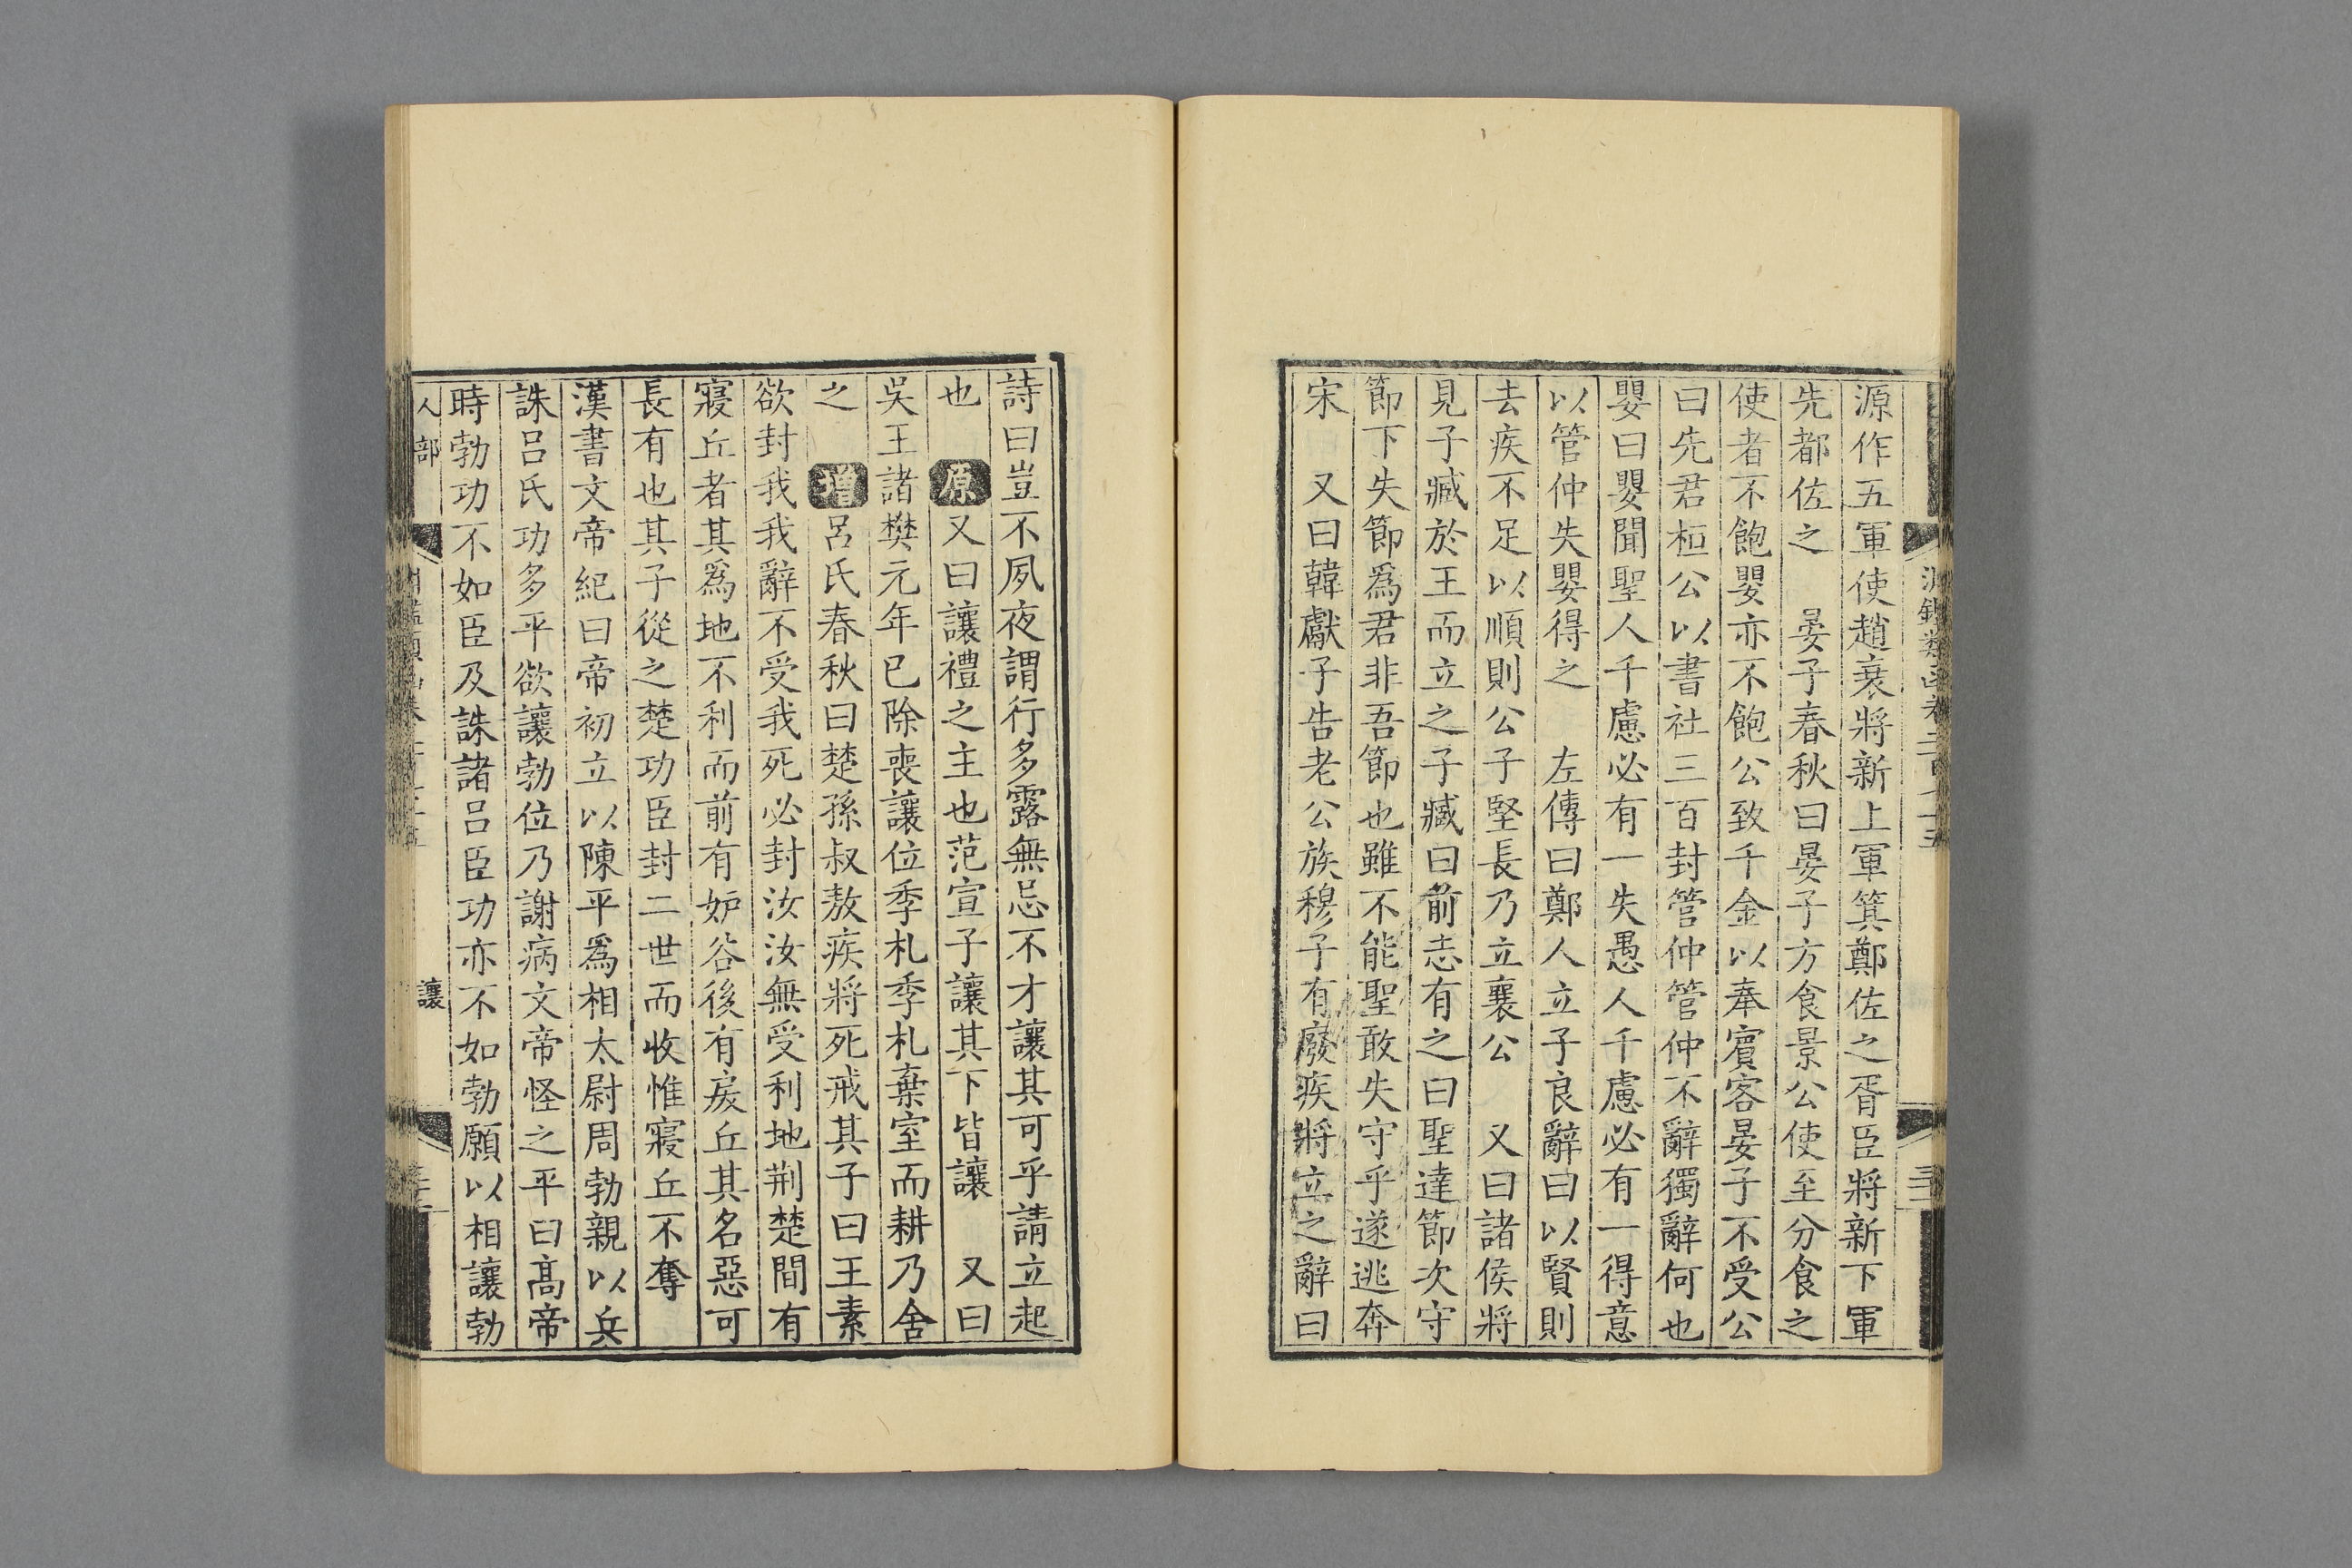 源作五軍使趙衰將新上軍箕鄭佐之胥臣將新下軍
先都佐之　晏子春秋曰晏子方食景公使至分食之
使者不飽嬰亦不飽公致千金以奉賓客晏子不受公
曰先君桓公以書社三百封管仲管仲不辭獨辭何也
嬰曰嬰聞聖人千慮必有一失愚人千慮必有一得意
以管仲失嬰得之　左傳曰鄭人立子良辭曰以賢則
去疾不足以順則公子堅長乃立襄公　又曰諸侯將
見子臧於王而立之子臧曰前志有之曰聖達節次守
節下失節為君非吾節也雖不能聖敢失守乎遂逃奔
宋　又曰韓獻子告老公族穆子有廢疾將立之辭曰
詩曰豈不夙夜謂行多露無忌不才讓其可乎請立起
也　原又曰讓禮之主也范宣子讓其下皆讓　又曰
吳王諸樊元年已除喪讓位季札季札棄室而耕乃舍
之　增呂氏春秋曰楚孫叔敖疾將死戒其子曰王素
欲封我我辭不受我死必封汝汝無受利地荆楚間有
寢丘者其為地不利而前有妒谷後有戾丘其名惡可
長有也其子從之楚功臣封二世而收惟寢丘不奪
漢書文帝紀曰帝初立以陳平為相太尉周勃親以兵
誅呂氏功多平欲讓勃位乃謝病文帝怪之平曰高帝
時勃功不如臣及誅諸呂臣功亦不如勃願以相讓勃
人部　讓